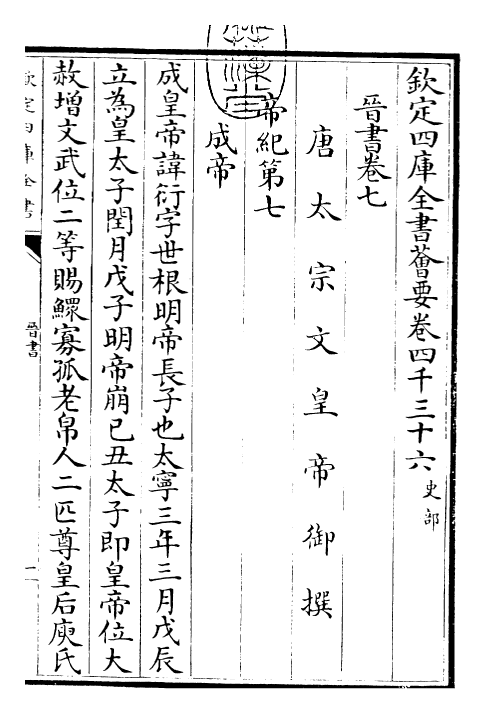 欽定四庫全書薈要卷四千三十六 史部
晉書卷七
唐太宗文皇帝御撰
帝紀第七
成帝
成皇帝諱衍字世根明帝長子也太寧三年三月戊辰
立為皇太子閏月戊子明帝崩己丑太子即皇帝位大
赦增文武位二等賜鰥寡孤老帛人二匹尊皇后庾氏
欽定四庫全書
晉書
一